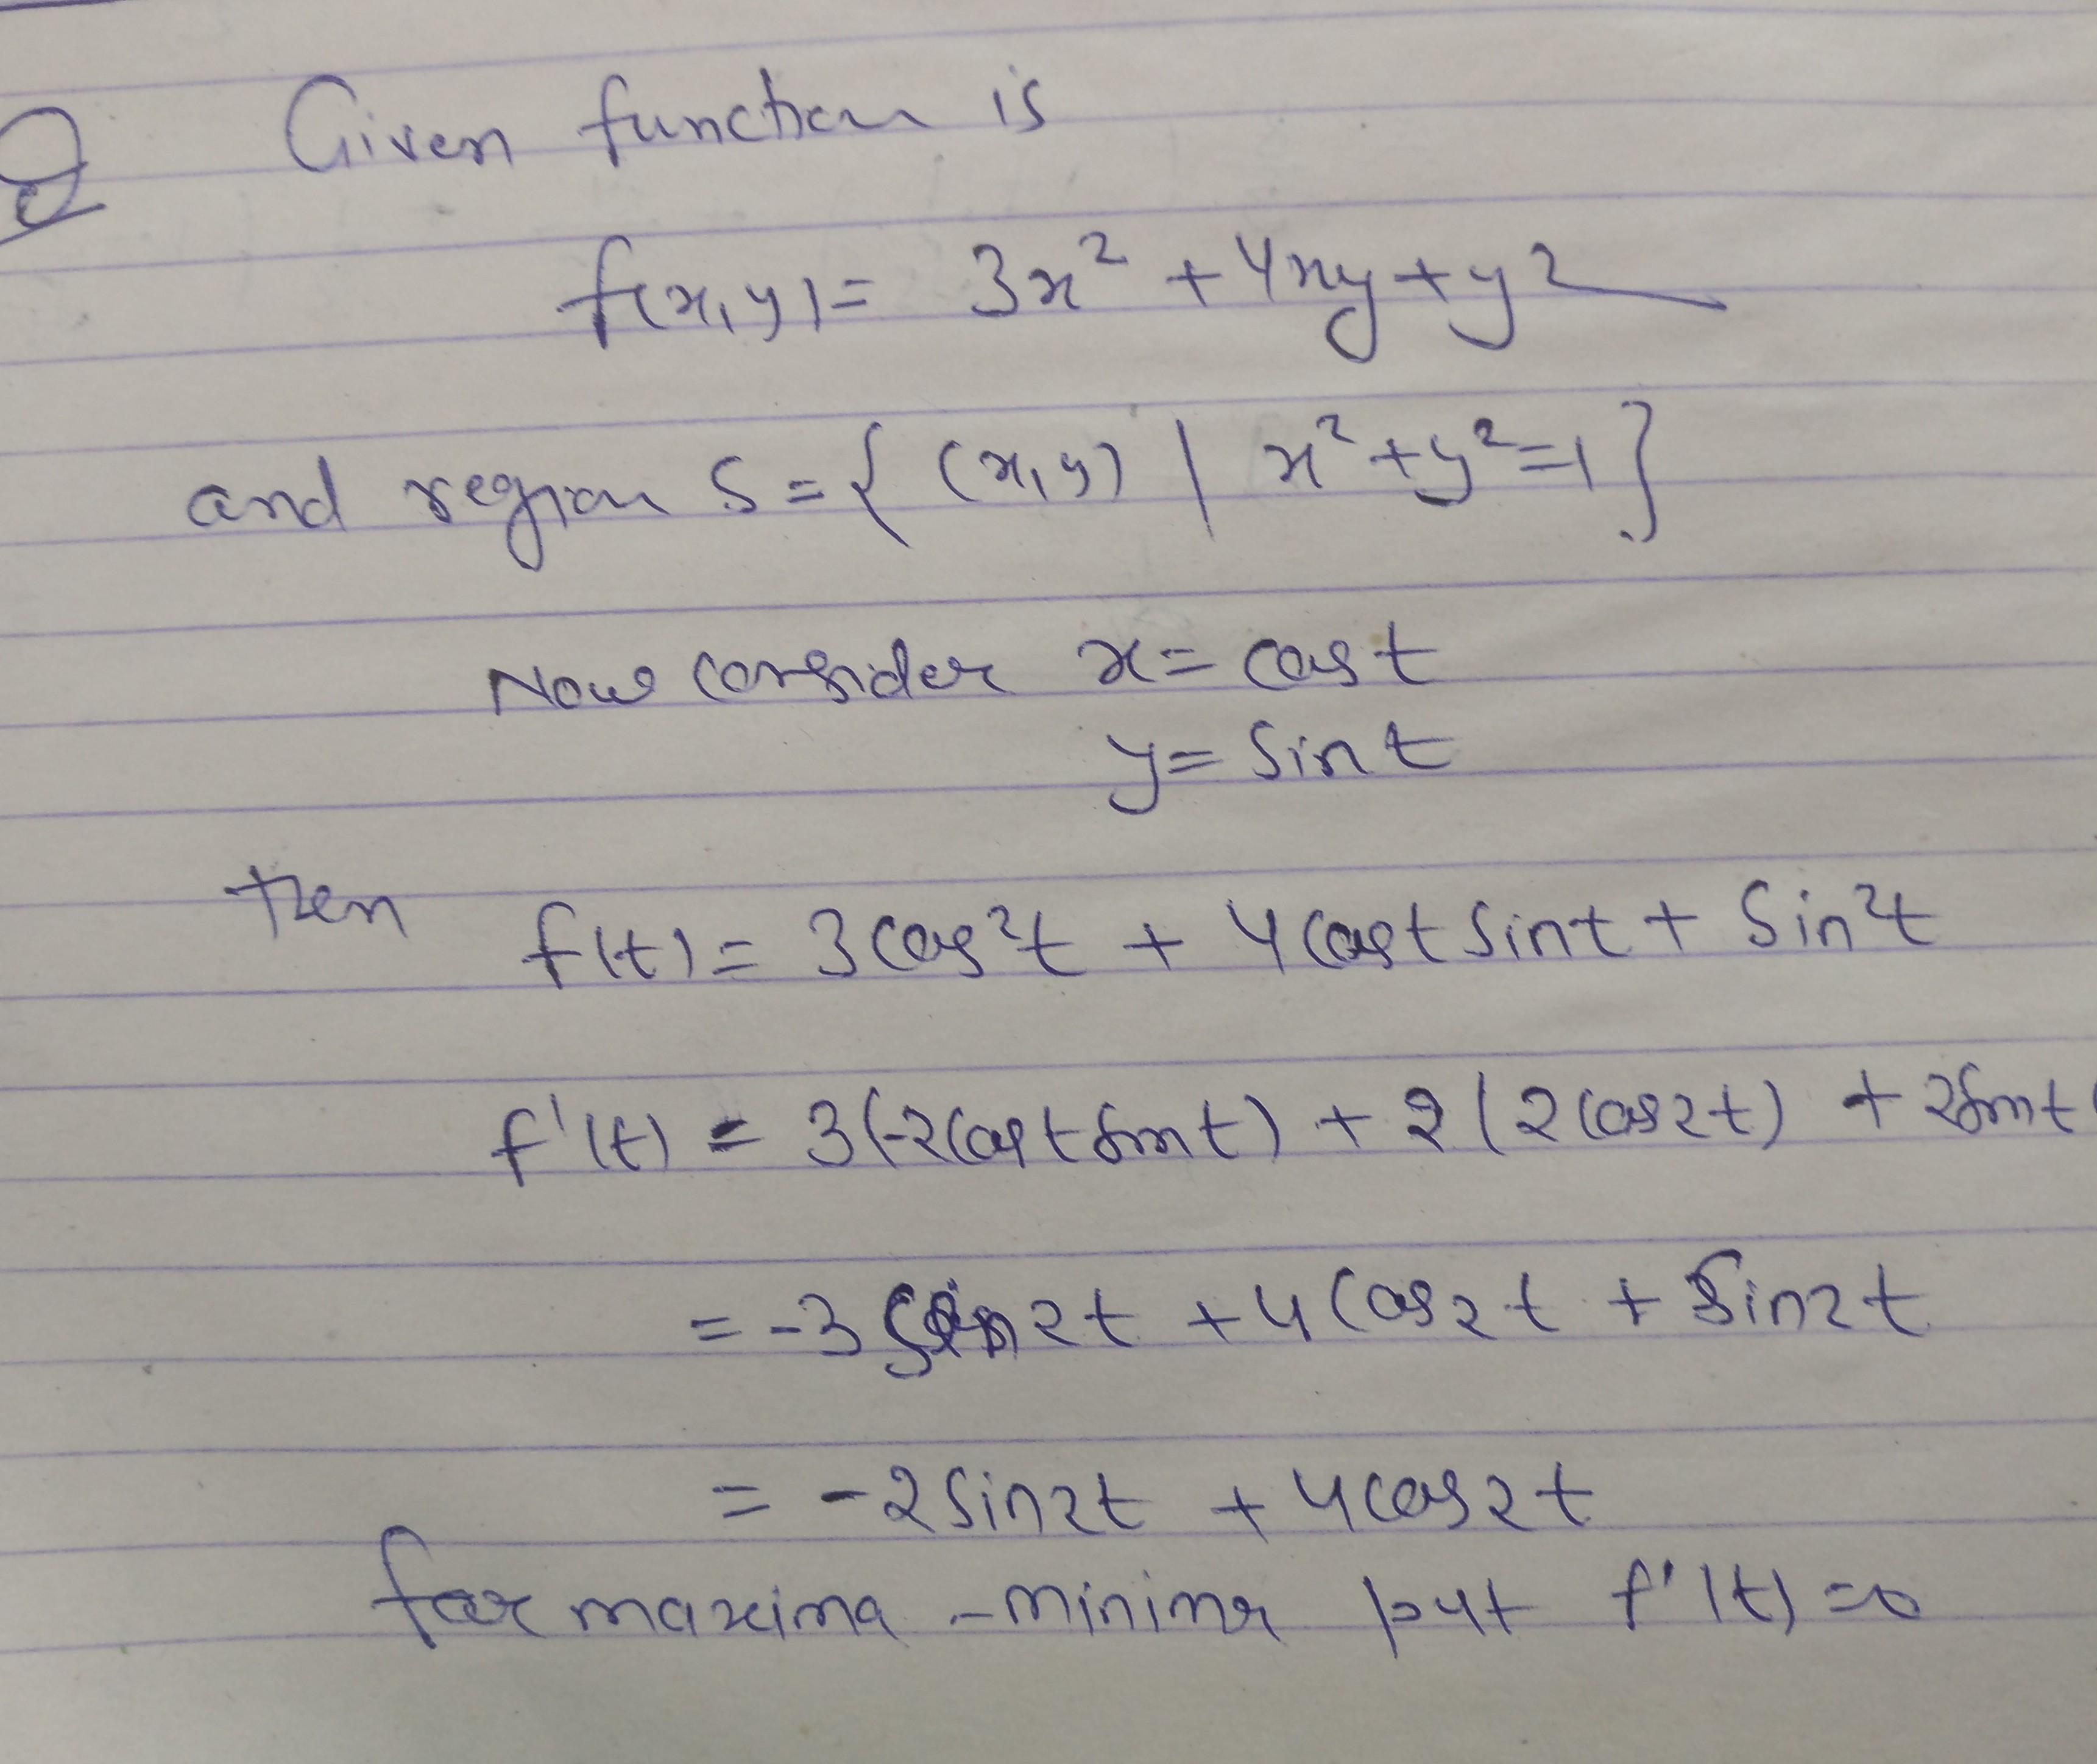 Q Given function is
f(x,y) = 3x² + 4xy + y²
and region S = { (x,y) | x² + y² = 1 }
Now consider x = cos t
y = sin t
then f(t) = 3 cos²t + 4 cos t sin t + sin²t
f'(t) = 3(-2 cos t sin t) + 2 (2 cos 2t) + 2 sin t (
= -3 sin 2t + 4 cos 2t + sin 2t
= -2 sin 2t + 4 cos 2t
for maxima - minima put f'(t) = 0